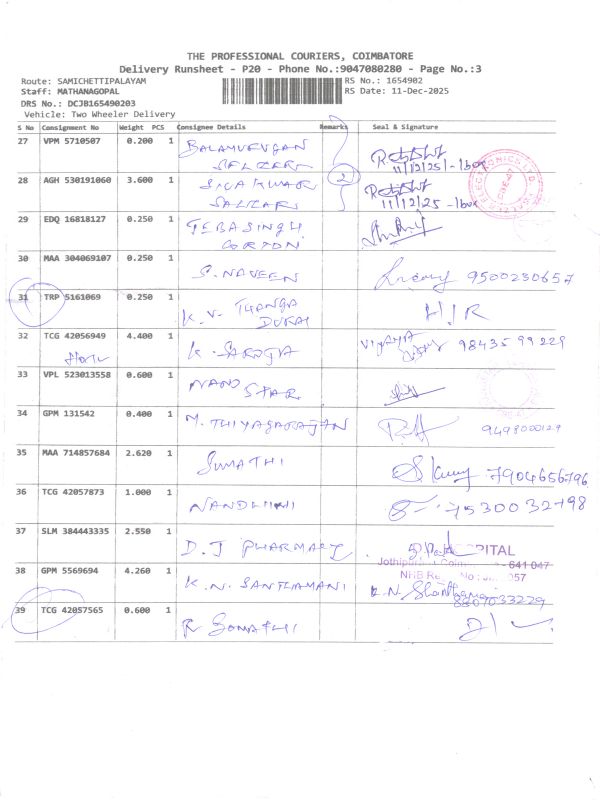 THE PROFESSIONAL COURIERS, COIMBATORE
Delivery Runsheet - P20 - Phone No.:9047080280 - Page No.:3
Route: SAMICHETTIPALAYAM RS No.: 1654902
Staff: MATHANAGOPAL RS Date: 11-Dec-2025
DRS No.: DCJB165490203
Vehicle: Two Wheeler Delivery
S No Consignment No Weight PCS Consignee Details Remarks Seal & Signature
27 VPM 5710507 0.200 1 BALAMURUGAN
11/12/25 - 1 box
28 AGH 530191060 3.600 1 SIVAKUMAR 2
11/12/25 - 1 box
29 EDQ 16818127 0.250 1 JEBASINGH
GORDON
30 MAA 304069107 0.250 1 S. NAVEEN 9500230657
31 TRP 5161069 0.250 1 K. V. THANGA
DURAI H/R
32 TCG 42056949 4.400 1 K. SAROJA VIJAYA 9843599229
33 VPL 523013558 0.600 1 NAND
STAR
34 GPM 131542 0.400 1 M. THIYAGARAJAN 9498000129
35 MAA 714857684 2.620 1 SUMATHI 7904656796
36 TCG 42057873 1.000 1 NANDHINI 7530032798
37 SLM 384443335 2.550 1 D. J PHARMACY
HOSPITAL
641 047
38 GPM 5569694 4.260 1 K. N. SANTHAMANI K. N. Shanthamani
8807033229
39 TCG 42057565 0.600 1 R SUMATHI